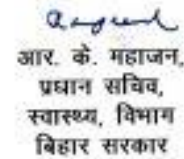 आर. के. महाजन,
प्रधान सचिव,
स्वास्थ्य, विभाग
बिहार सरकार